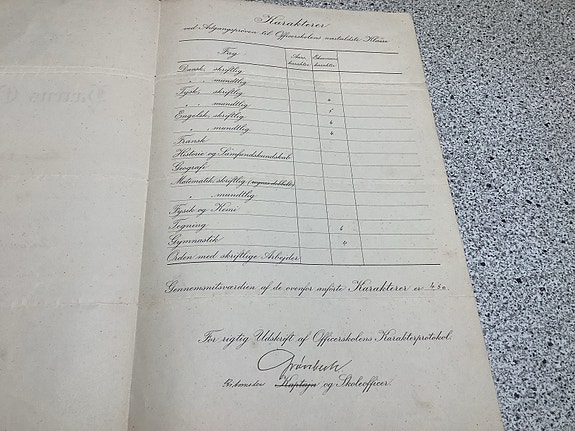 Karakterer
ved Adgangsprøven til Officersskolens næstældste Klasse
Fag. Aars- karakter Eksamens- karakter
Dansk, skriftlig
" , mundtlig
Tysk, skriftlig
" , mundtlig
Engelsk, skriftlig
" , mundtlig
Fransk
Historie og Samfundskundskab
Geografi
Matematik, skriftlig (regnes dobbelt)
" , mundtlig
Fysik og Kemi
Tegning
Gymnastik
Orden med skriftlige Arbejder
Gennemsnitsværdien af de ovenfor anførte Karakterer er
For rigtig Udskrift af Officersskolens Karakterprotokol.
Kaptajn og Skoleofficer.